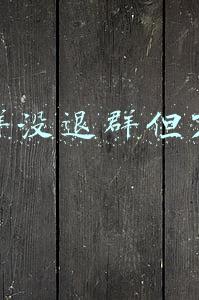 没退群但